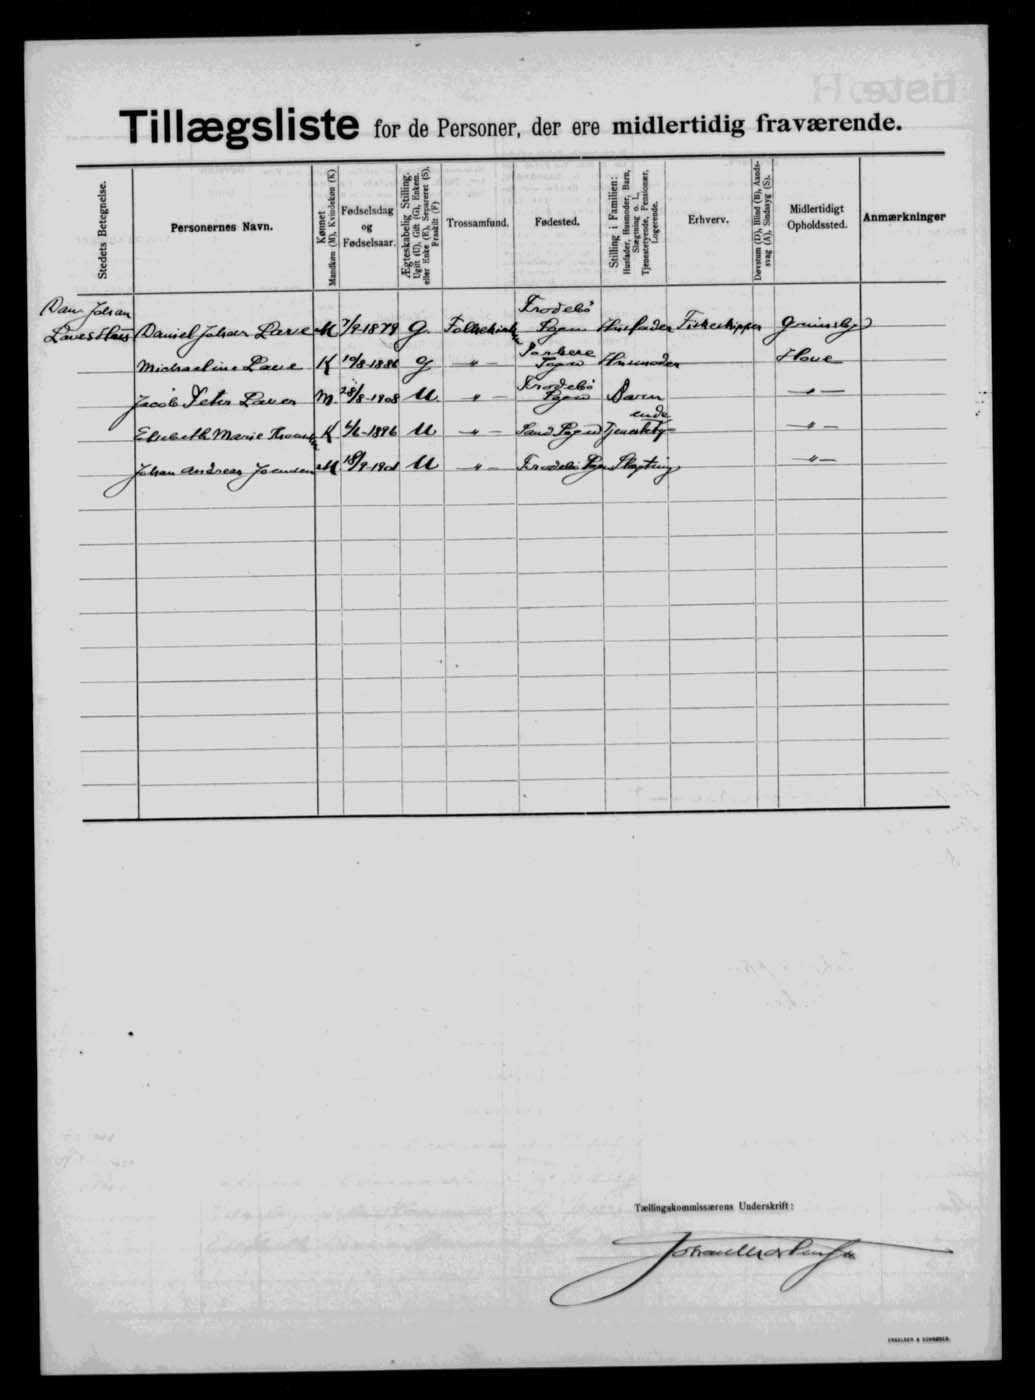 Tillægsliste for de Personer, der ere midlertidig fraværende.
Stedets Betegnelse.
Personernes Navn.
Kønnet
Mandkøn (M), Kvindekøn (K)
Fødselsdag
og
Fødselsaar.
Ægteskabelig Stilling.
Ugift (U), Gift (G), Enkem.
eller Enke (E), Separeret (S),
Fraskilt (F)
Trossamfund.
Fødested.
Stilling i Familien:
Husfader, Husmoder, Barn,
Slægtning o. l.,
Tjenestetyende, Pensionær,
Logerende.
Erhverv.
Døvstum (D), Blind (B), Aands-
svag (A), Sindssyg (S).
Midlertidigt
Opholdssted.
Anmærkninger
Dan Johan
Daniel Johan M 7/9-1879 G. Frodebø Sogn Husfader Fiskeskipper
Michaeline K 10/8-1886 G — " — Sogn Husmoder Hove
Jacob Peter M. 28/8-1908 U. — " — Frodebø Sogn Barn — " —
Elsebeth Marie K 4/6-1896 U — " — Sand Sogn Tjenestetyende — " —
Johan Andreas Joensen M 18/9-1901 U — " — Frodebø Sogn Slægtning — " —
Tællingskommissærens Underskrift: